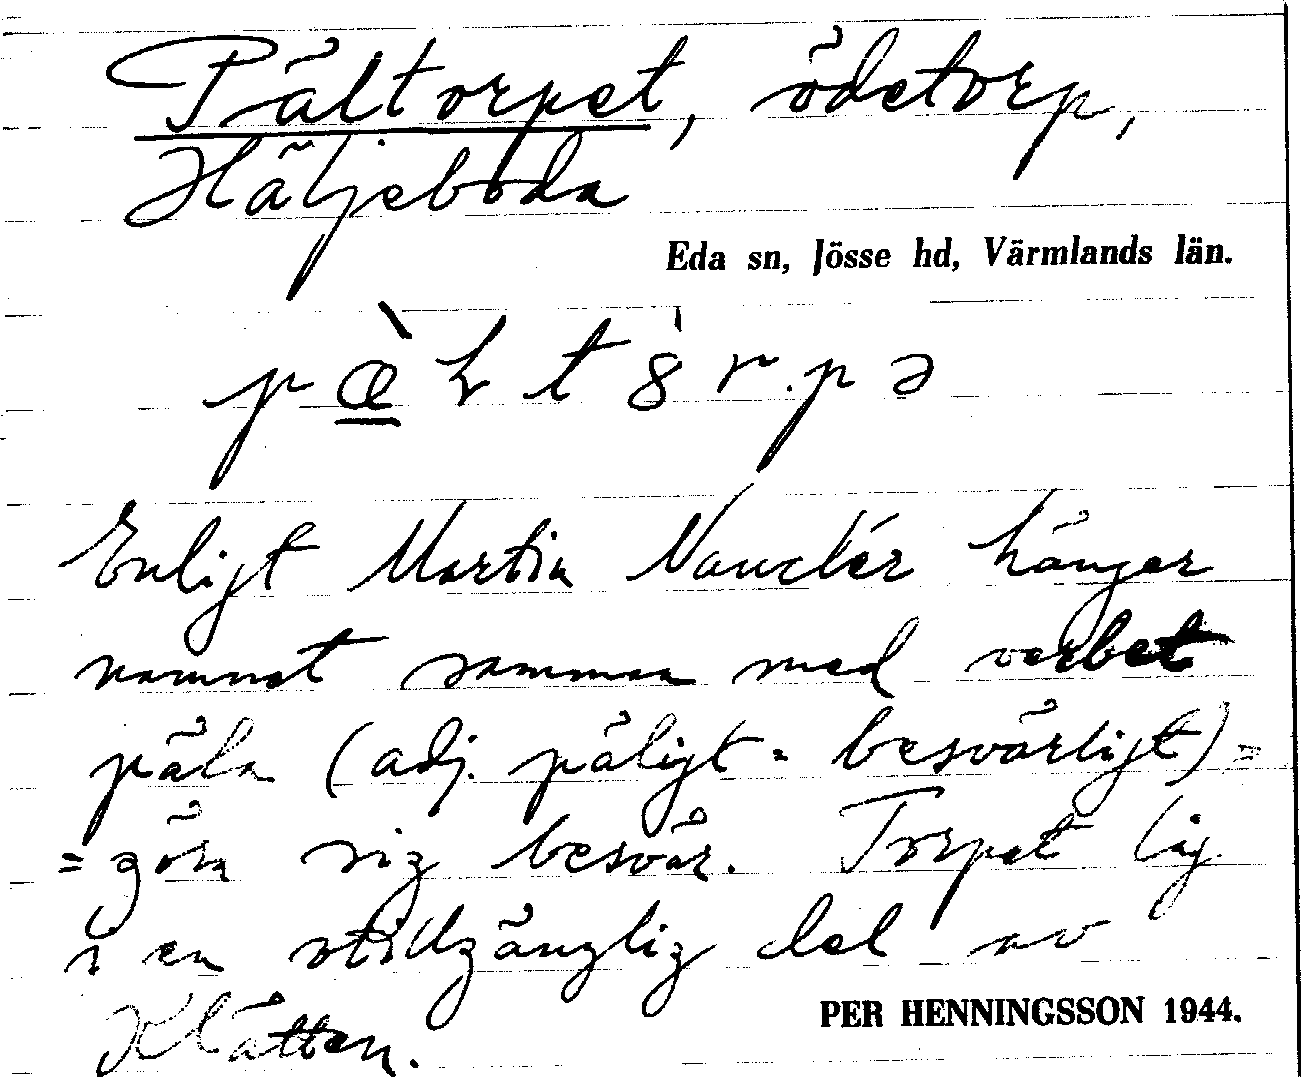 Pältorpet, ödetorp,
Häljeboda
Eda sn, Jösse hd, Värmlands län.
Enligt Martin Nauclér hänger
namnet samman med verbet
päla (adj. päligt = besvärligt) =
= göra sig besvär. Torpet låg
i en otillgänglig del av
Klätten.
PER HENNINGSSON 1944.